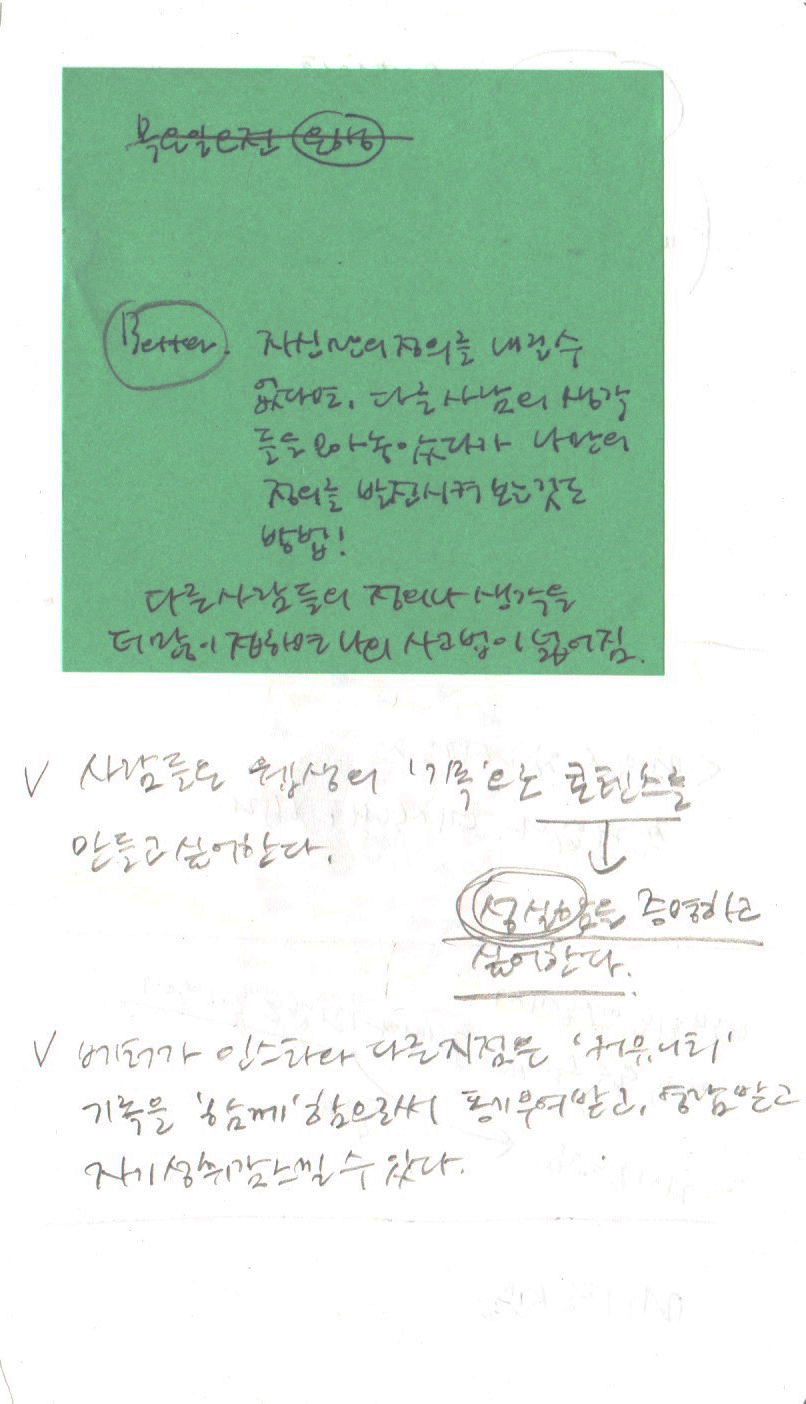 목요일오전
Better. 자신만의 정의를 내릴 수
없다면, 다른 사람의 생각
들을 모아놓았다가 나만의
정의를 발전시켜 보는 것도
방법!
다른 사람들의 정의나 생각을
더 많이 접하면 나의 사고법이 넓어짐.
V 사람들도 평생의 '기록'으로 콘텐츠를
만들고 싶어한다.
↓
성실함을 증명하고
싶어한다.
V 베터가 인스타와 다른 지점은 '커뮤니티'
기록을 '함께' 함으로써 동기부여받고, 영감받고
자기성취감 느낄 수 있다.